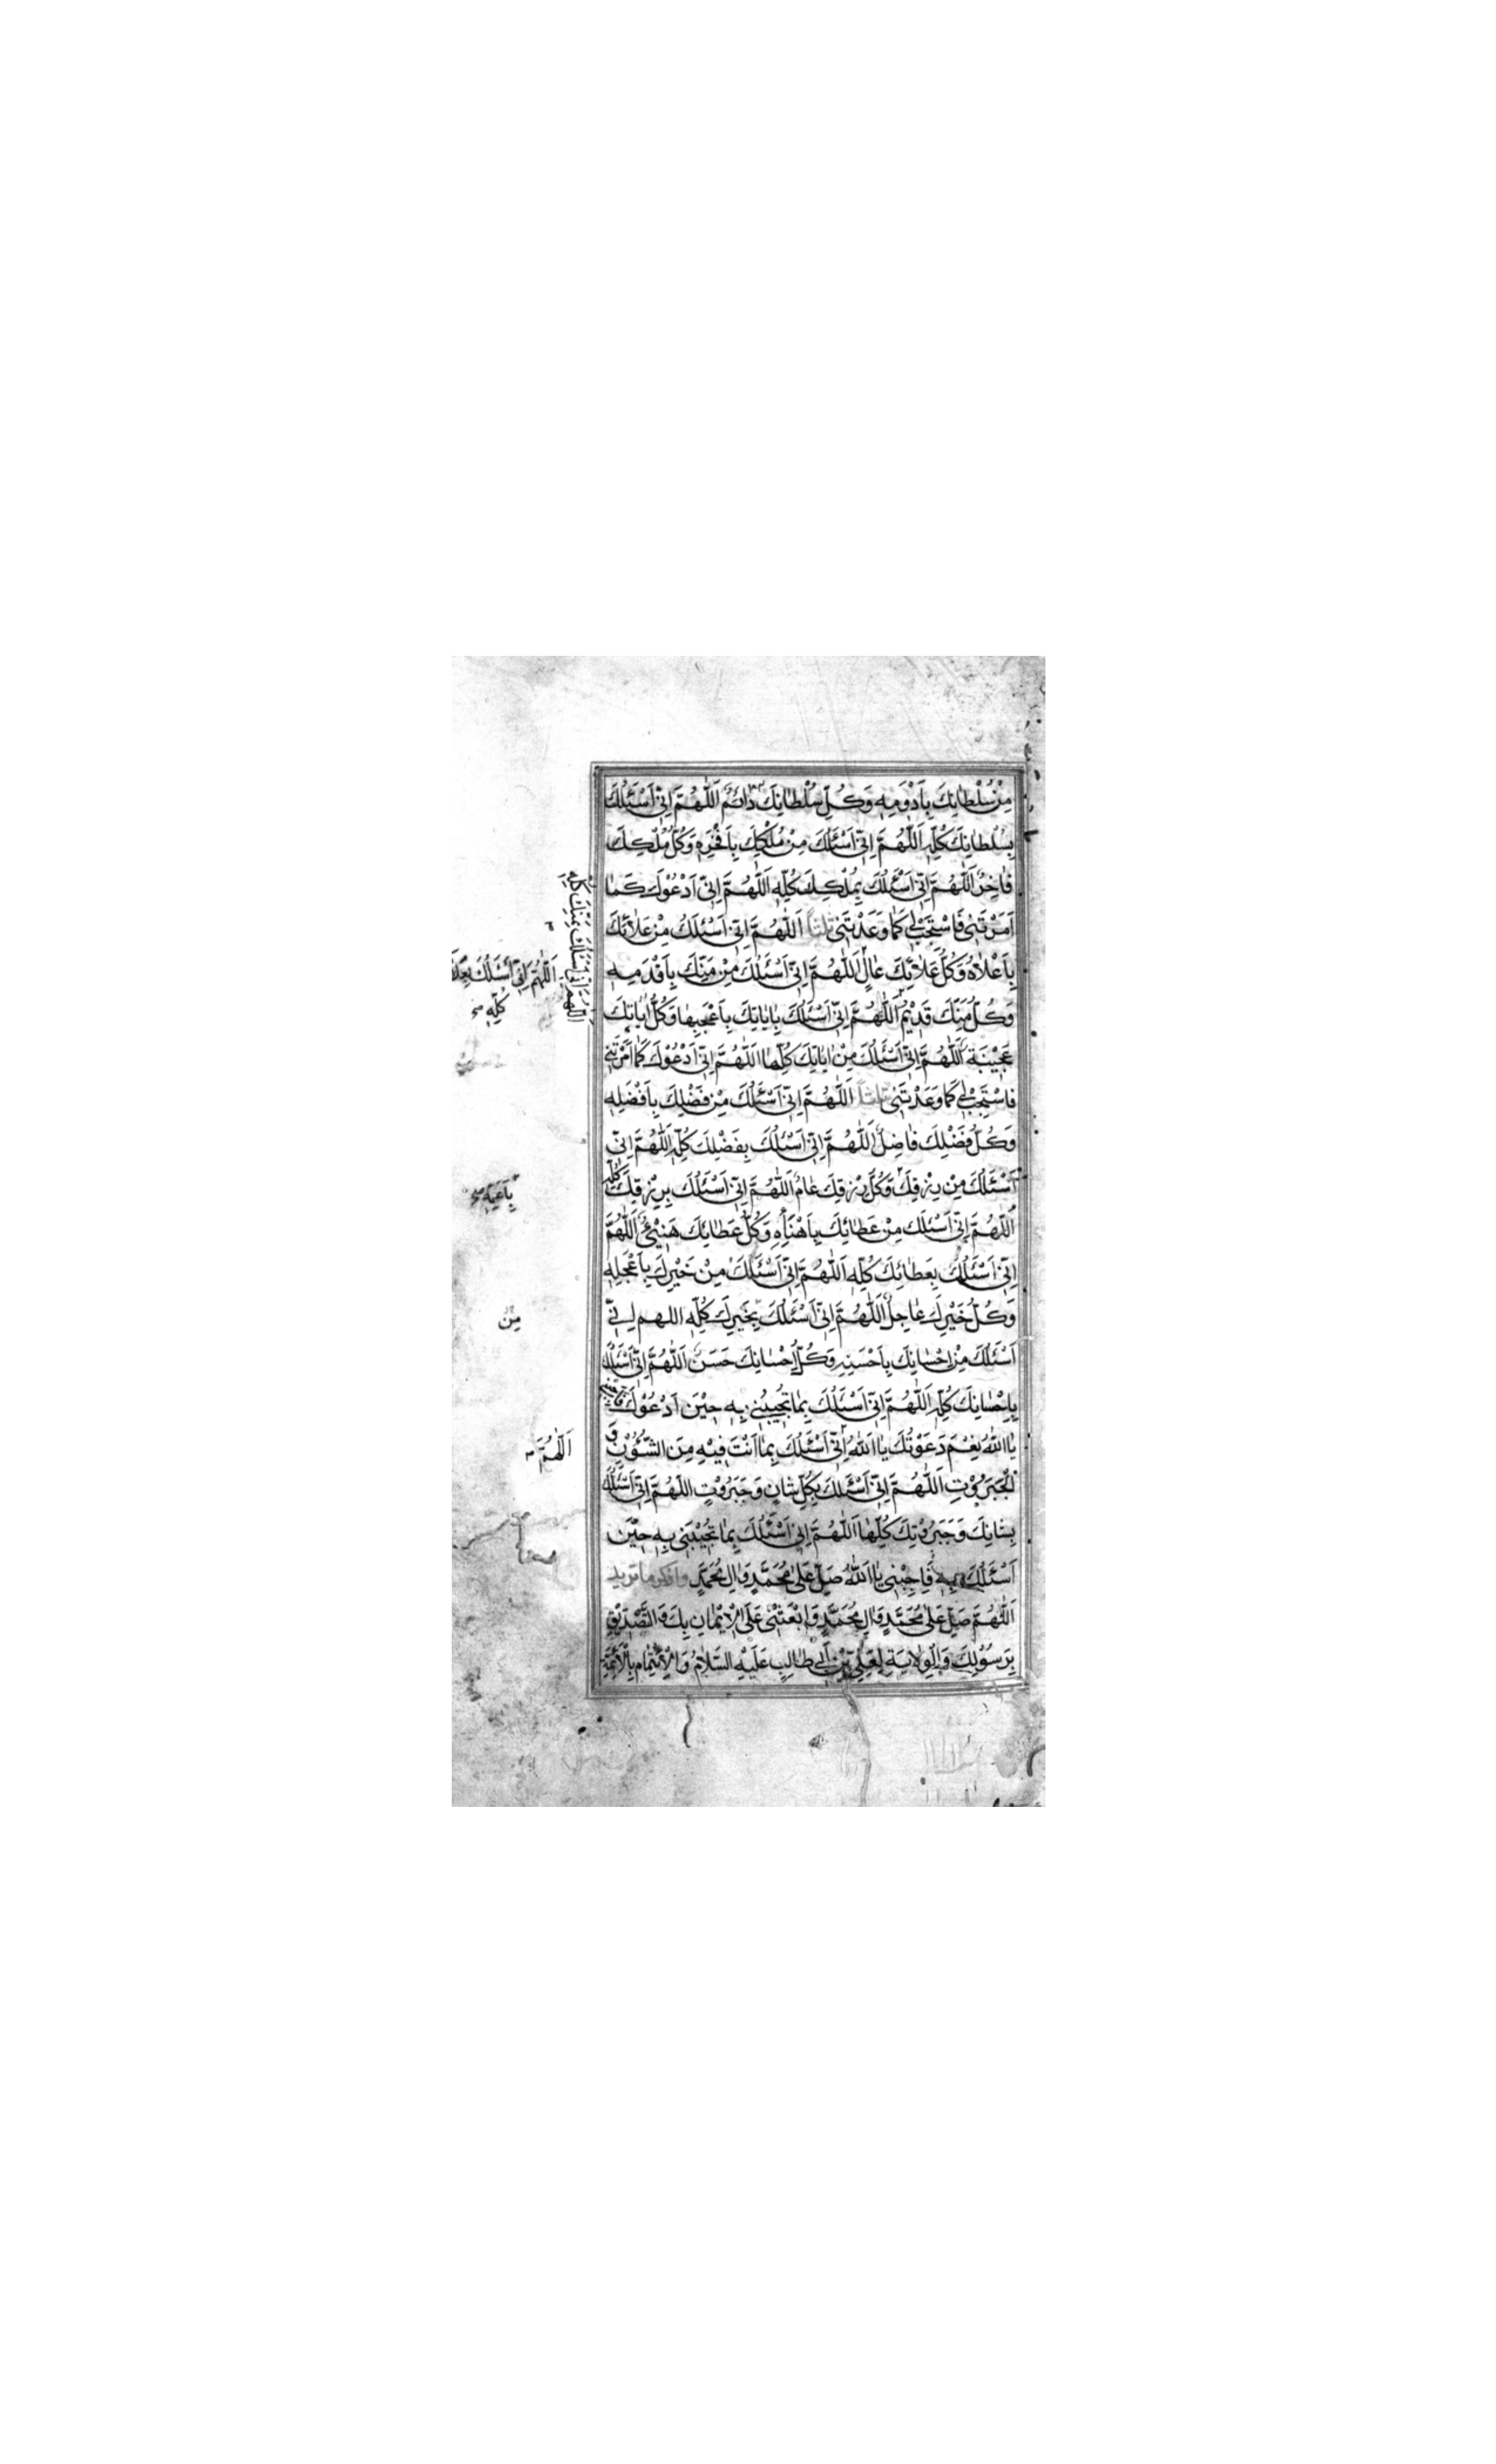 مِنْ سُلْطَانِكَ بِاَدْوَمِهِ وَكُلُّ سُلْطَانِكَ دَائِمٌ اَللّٰهُمَّ اِنِّي اَسْئَلُكَ
بِسُلْطَانِكَ كُلِّهِ اَللّٰهُمَّ اِنِّي اَسْئَلُكَ مِنْ مُلْكِكَ بِاَفْخَرِهِ وَكُلُّ مُلْكِكَ
فَاخِرٌ اَللّٰهُمَّ اِنِّي اَسْئَلُكَ بِمُلْكِكَ كُلِّهِ اَللّٰهُمَّ اِنِّي اَدْعُوْكَ كَمَا
اَمَرْتَنِي فَاسْتَجِبْ لِي كَمَا وَعَدْتَنِي ثلثاً اَللّٰهُمَّ اِنِّي اَسْئَلُكَ مِنْ عَلَائِكَ
بِاَعْلَاهُ وَكُلُّ عَلَائِكَ عَالٍ اَللّٰهُمَّ اِنِّي اَسْئَلُكَ مِنْ مَنِّكَ بِاَقْدَمِهِ
وَكُلُّ مَنِّكَ قَدِيْمٌ اَللّٰهُمَّ اِنِّي اَسْئَلُكَ بِاٰيَاتِكَ بِاَعْجَبِهَا وَكُلُّ اٰيَاتِكَ
عَجِيْبَةٌ اَللّٰهُمَّ اِنِّي اَسْئَلُكَ مِنْ اٰيَاتِكَ كُلِّهَا اَللّٰهُمَّ اِنِّي اَدْعُوْكَ كَمَا اَمَرْتَنِي
فَاسْتَجِبْ لِي كَمَا وَعَدْتَنِي ثلثاً اَللّٰهُمَّ اِنِّي اَسْئَلُكَ مِنْ فَضْلِكَ بِاَفْضَلِهِ
وَكُلُّ فَضْلِكَ فَاضِلٌ اَللّٰهُمَّ اِنِّي اَسْئَلُكَ بِفَضْلِكَ كُلِّهِ اَللّٰهُمَّ اِنِّي
اَسْئَلُكَ مِنْ رِزْقِكَ وَكُلُّ رِزْقِكَ عَامٌ اَللّٰهُمَّ اِنِّي اَسْئَلُكَ بِرِزْقِكَ كُلِّهِ
اَللّٰهُمَّ اِنِّي اَسْئَلُكَ مِنْ عَطَائِكَ بِاَهْنَأِهِ وَكُلُّ عَطَائِكَ هَنِيْئٌ اَللّٰهُمَّ
اِنِّي اَسْئَلُكَ بِعَطَائِكَ كُلِّهِ اَللّٰهُمَّ اِنِّي اَسْئَلُكَ مِنْ خَيْرِكَ بِاَعْجَلِهِ
وَكُلُّ خَيْرِكَ عَاجِلٌ اَللّٰهُمَّ اِنِّي اَسْئَلُكَ بِخَيْرِكَ كُلِّهِ اللهم اِنِّي
اَسْئَلُكَ مِنْ اِحْسَانِكَ بِاَحْسَنِهِ وَكُلُّ اِحْسَانِكَ حَسَنٌ اَللّٰهُمَّ اِنِّي اَسْئَلُكَ
بِاِحْسَانِكَ كُلِّهِ اَللّٰهُمَّ اِنِّي اَسْئَلُكَ بِمَا تُجِيْبُنِي بِهِ حِيْنَ اَدْعُوْكَ
يَا اَللّٰهُ نِعْمَ دَعَوْتُكَ يَا اَللّٰهُ اِنِّي اَسْئَلُكَ بِمَا اَنْتَ فِيْهِ مِنَ الشُّؤُنِ وَ
الْجَبَرُوْتِ اَللّٰهُمَّ اِنِّي اَسْئَلُكَ بِكُلِّ شَانٍ وَجَبَرُوْتٍ اَللّٰهُمَّ اِنِّي اَسْئَلُكَ
بِشَانِكَ وَجَبَرُوْتِكَ كُلِّهَا اَللّٰهُمَّ اِنِّي اَسْئَلُكَ بِمَا تُجِيْبُنِي بِهِ حِيْنَ
اَسْئَلُكَ بِهِ فَاَجِبْنِي يَا اَللّٰهُ صَلِّ عَلٰى مُحَمَّدٍ وَاٰلِ مُحَمَّدٍ واذكر ما تريد
اَللّٰهُمَّ صَلِّ عَلٰى مُحَمَّدٍ وَاٰلِ مُحَمَّدٍ وَابْعَثْنِي عَلَى الْاِيْمَانِ بِكَ وَالتَّصْدِيْقِ
بِرَسُوْلِكَ وَالْوِلَايَةِ لِعَلِيِّ بْنِ اَبِي طَالِبٍ عَلَيْهِ السَّلَامُ وَالْاِئْتِمَامِ بِالْاَئِمَّةِ
اَللّٰهُمَّ اِنِّي اَسْئَلُكَ بِمَنِّكَ كُلِّهِ
اَللّٰهُمَّ اِنِّي اَسْئَلُكَ
كُلِّهِ
مِنْ
اَللّٰهُمَّ